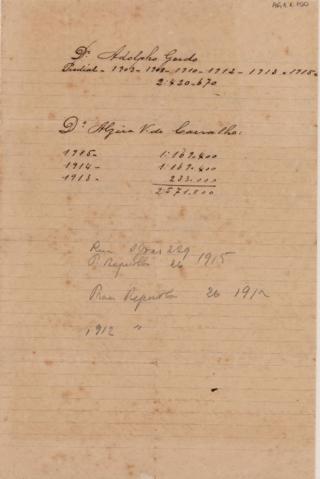 Dr. Adolpho Gordo
Predial - 1907 - 1908 - 1910 - 1912 - 1913 - 1915 -
2:420.670
Da. Alzira V. de Carvalho:
1915 - 1:169.400
1914 - 1:169.400
1913 - 233.000
2:571.800
Rua 229
P. Republica 26 1915
Rua Republica 26 1912
1912 "